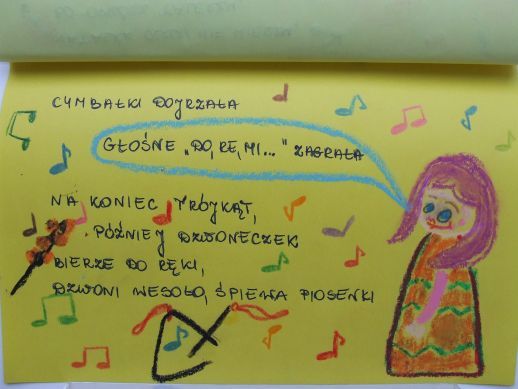 CYMBAŁKI DOJRZAŁA
GŁOŚNE „DO, RE, MI..." ZAGRAŁA
NA KONIEC TRÓJKĄT,
PÓŹNIEJ DZWONECZEK
BIERZE DO RĘKI,
DZWONI WESOŁO, ŚPIEWA PIOSENKI